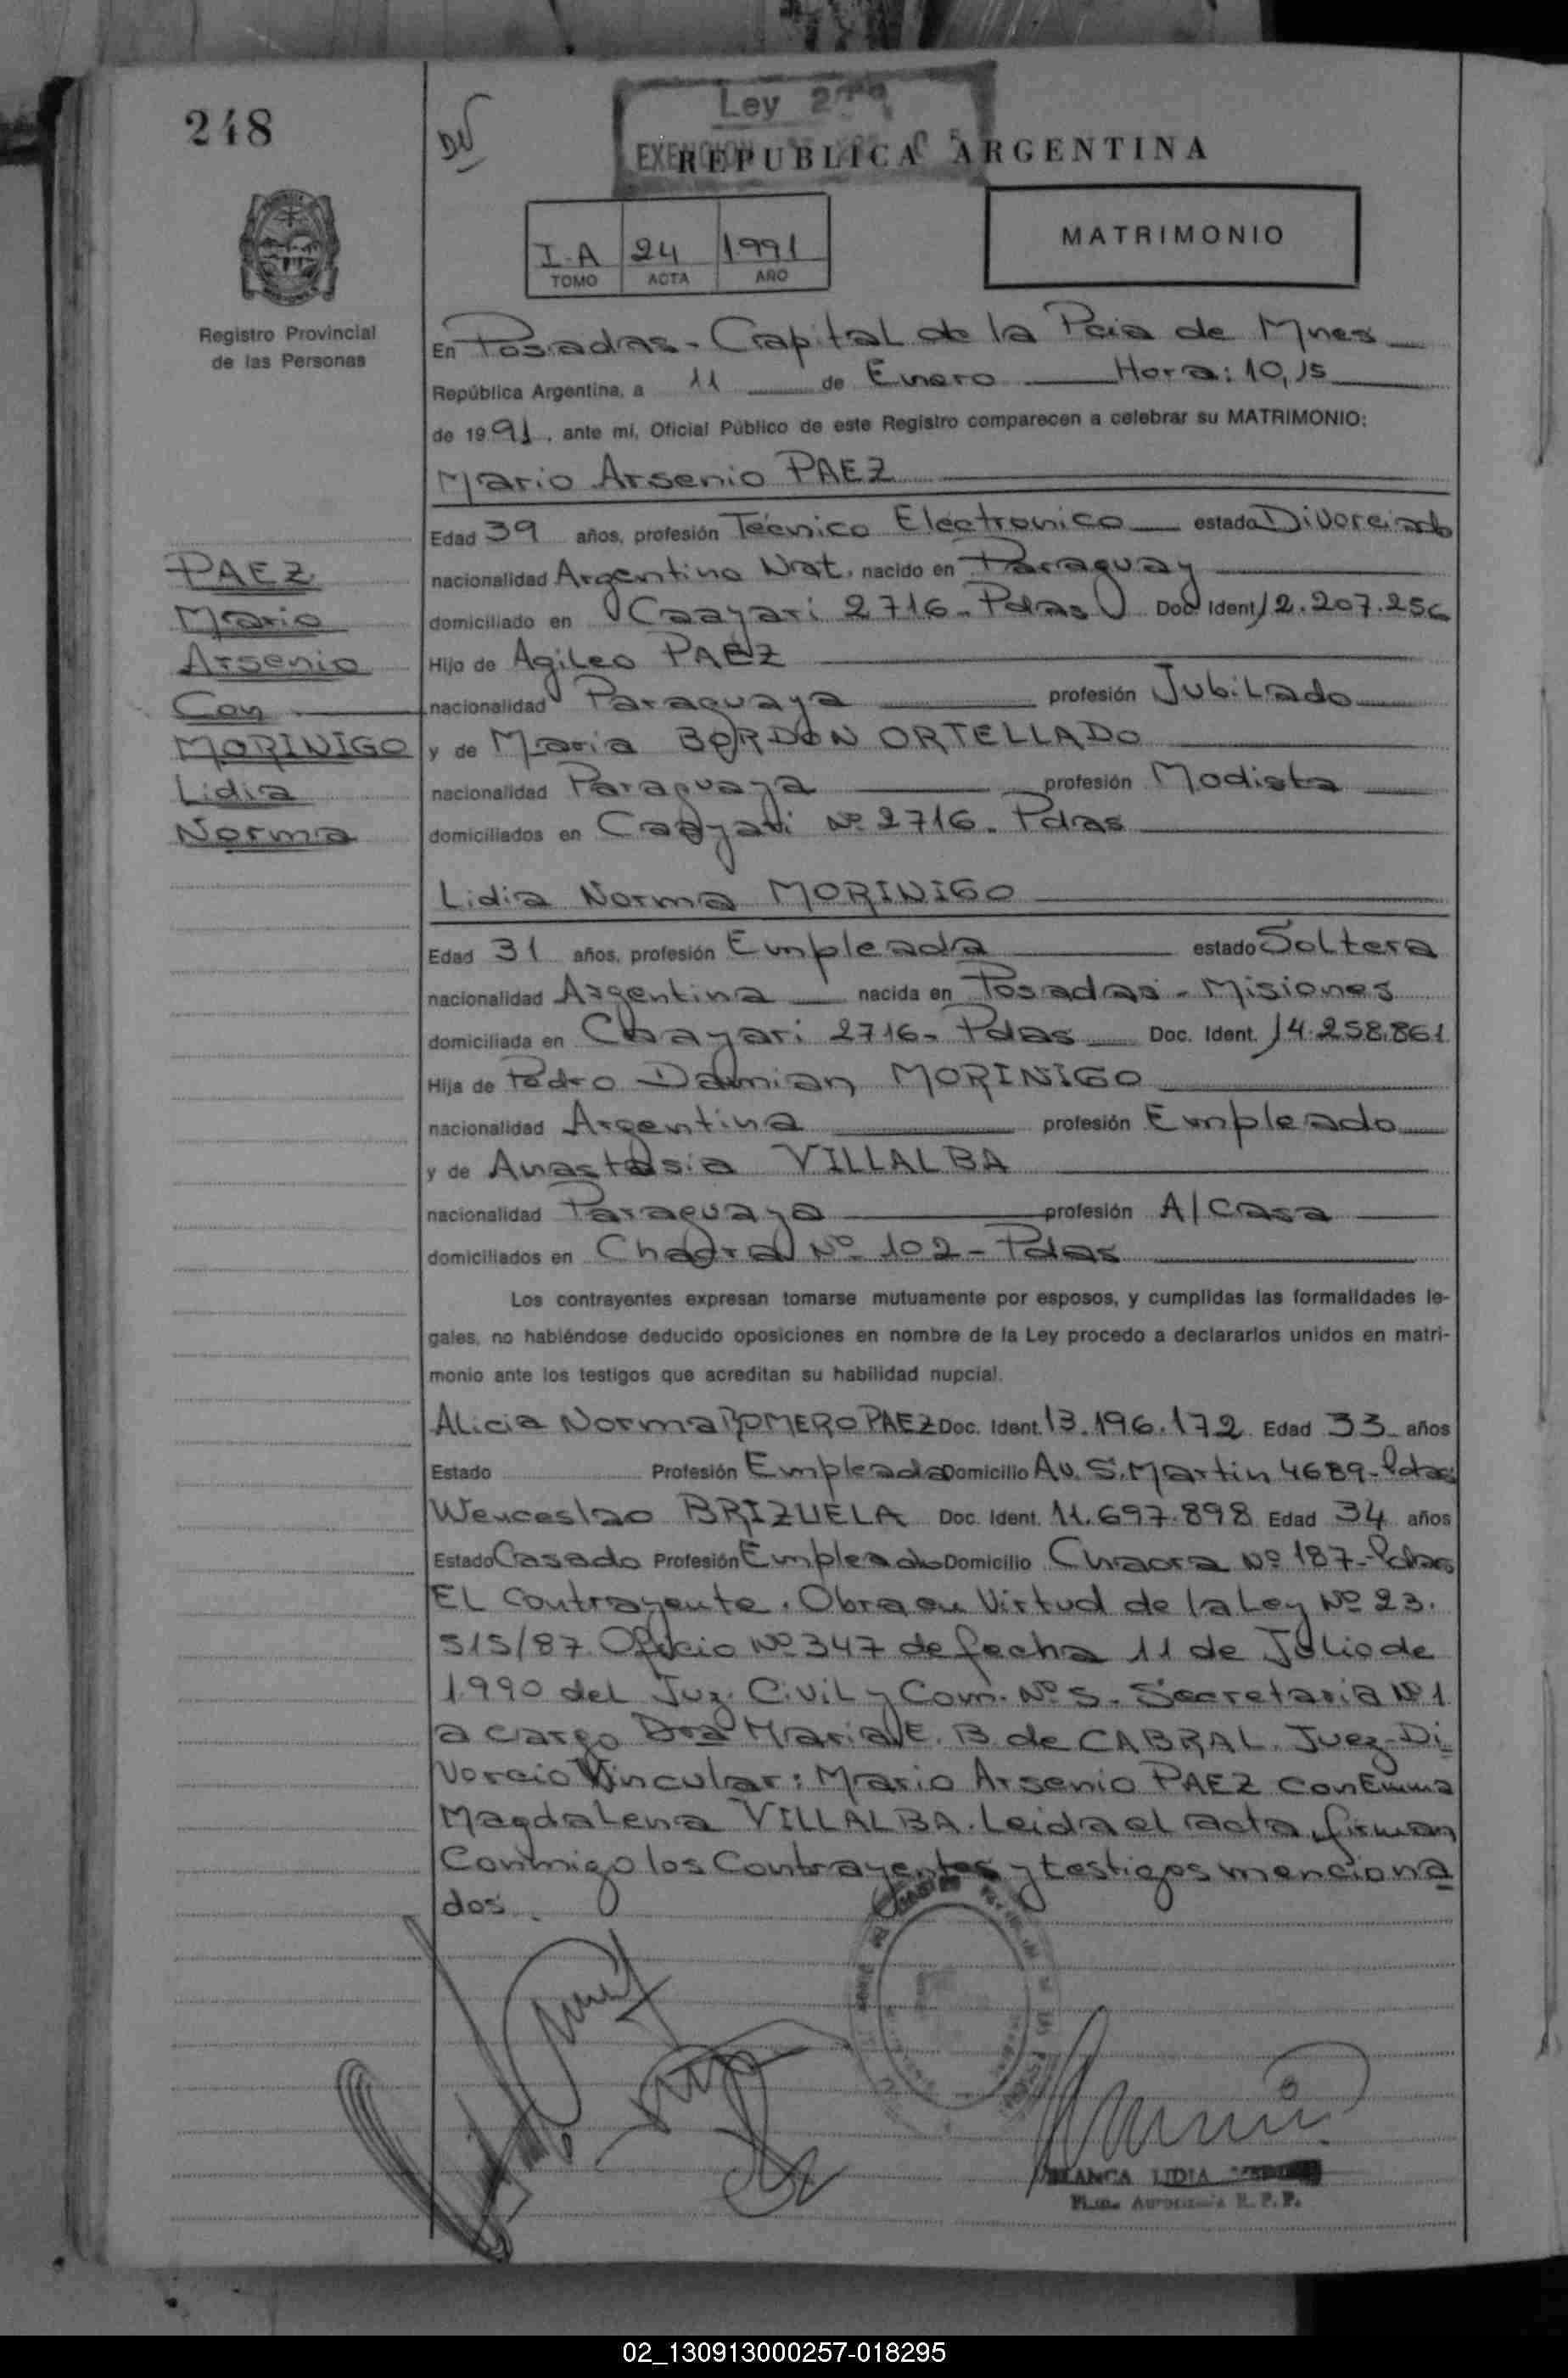 248
Ley
EXENCION
REPUBLICA ARGENTINA
I-A 24 1991
TOMO ACTA AÑO
MATRIMONIO
Registro Provincial
de las Personas
En Posadas - Capital de la Pcia de Mnes
República Argentina, a 11 de Enero Hora: 10,15
de 1991, ante mí, Oficial Público de este Registro comparecen a celebrar su MATRIMONIO:
Mario Arsenio PAEZ
Edad 39 años, profesión Tecnico Electronico estado Divorciado
nacionalidad Argentino Nat. nacido en Paraguay
domiciliado en Caayari 2716 - Pdas Doc. Ident. 12.207.256
Hijo de Agileo PAEZ
nacionalidad Paraguaya profesión Jubilado
y de Maria BORDON ORTELLADO
nacionalidad Paraguaya profesión Modista
domiciliados en Caayari Nº 2716 - Pdas
PAEZ
Mario
Arsenio
Con
MORINIGO
Lidia
Norma
Lidia Norma MORINIGO
Edad 31 años, profesión Empleada estado Soltera
nacionalidad Argentina nacida en Posadas - Misiones
domiciliada en Caayari 2716 - Pdas Doc. Ident. 14.258.861
Hija de Pedro Damian MORINIGO
nacionalidad Argentina profesión Empleado
y de Anastasia VILLALBA
nacionalidad Paraguaya profesión A/casa
domiciliados en Chacra Nº 102 - Pdas
Los contrayentes expresan tomarse mutuamente por esposos, y cumplidas las formalidades le-
gales, no habiéndose deducido oposiciones en nombre de la Ley procedo a declararlos unidos en matri-
monio ante los testigos que acreditan su habilidad nupcial.
Alicia Norma ROMERO PAEZ Doc. Ident. 13.196.172 Edad 33 años
Estado Profesión Empleada Domicilio Av. S. Martin 4689 - Pdas
Wenceslao BRIZUELA Doc. Ident. 11.697.898 Edad 34 años
Estado Casado Profesión Empleado Domicilio Chacra Nº 187 - Pdas
EL Contrayente. Obra en Virtud de la Ley Nº 23.
515/87. Oficio Nº 347 de fecha 11 de Julio de
1990 del Juz. Civil y Com. Nº 5 - Secretaria Nº 1
a cargo Dra Maria E. B. de CABRAL. Juez - Di
Vorcio Vincular: Mario Arsenio PAEZ con Emma
Magdalena VILLALBA. Leida el acta, firman
Conmigo los Contrayentes y testigos menciona
dos.
BLANCA LIDIA
R. P. P.
02_130913000257-018295